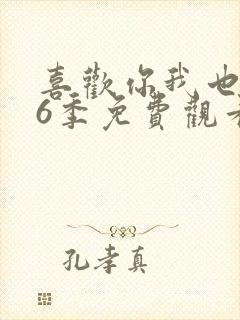 喜歡你我也
6季免費觀看
孔孝真